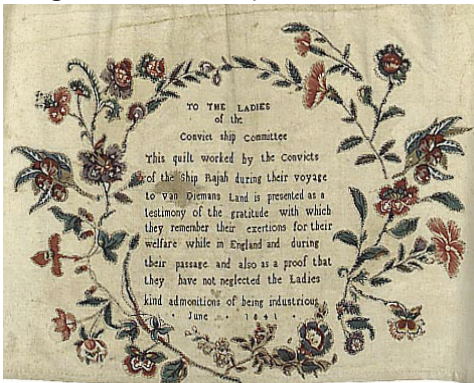 TO THE LADIES
of the
Convict ship Committee
This quilt worked by the Convicts
of the Ship Rajah during their voyage
to Van Diemans Land is presented as a
testimony of the gratitude with which
they remember their exertions for their
welfare while in England and during
their passage and also as a proof that
they have not neglected the Ladies
kind admonitions of being industrious
June 1841